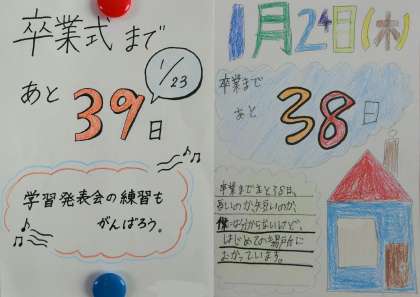 卒業式まで
1/23
あと39日
学習発表会の練習も
がんばろう。
1月24日(木)
卒業まで
あと38日
卒業まであと38日。
長いのか、短いのか、
僕は分からないけど、
はじめての場所に
むかっています。